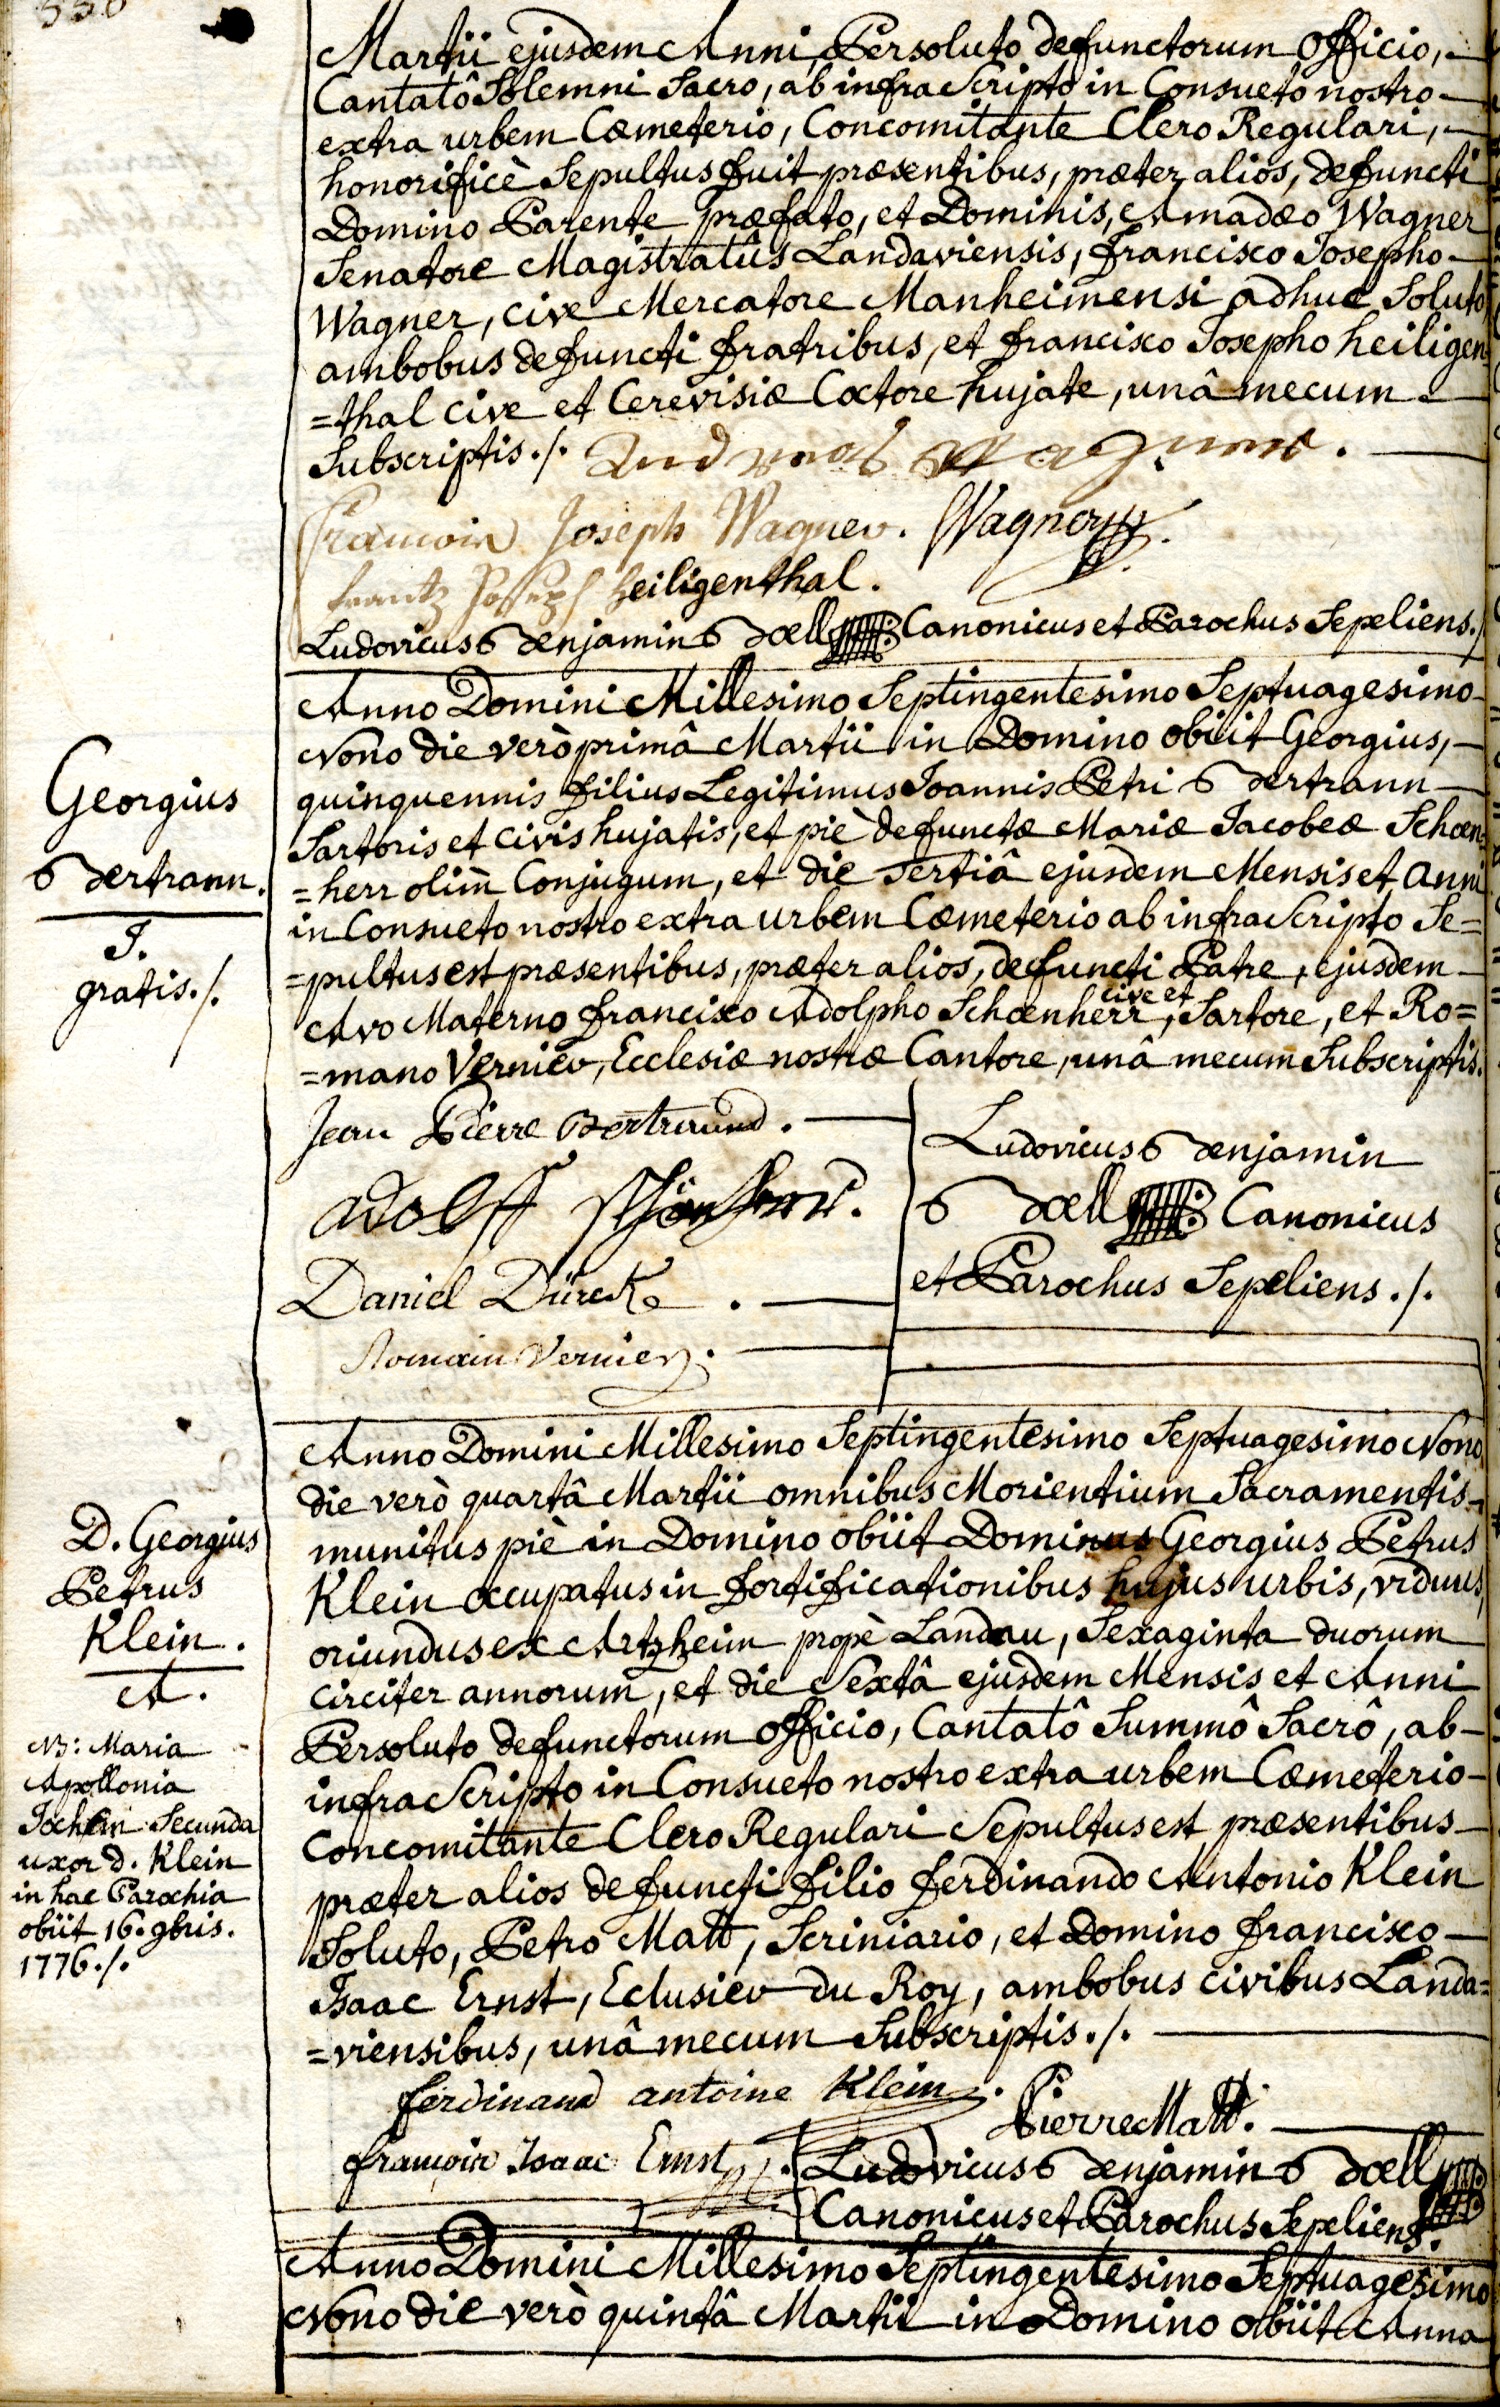 Martii ejusdem Anni, Persoluto defunctorum Officio,
Cantatô Solemni Sacro, ab infra Scripto in Consueto nostro
extra urbem Cœmeterio, Concomitante Clero Regulari,
honorificè Sepultus fuit præsentibus, præter alios, defuncti
Domino Parente præfato, et Dominis, Amadæo Wagner
Senatore Magistratûs Landaviensis, Francisco Josepho
Wagner, cive Mercatore Manheimensi adhuc Soluto,
ambobus defuncti fratribus, et Francisco Josepho heiligen
=thal cive et Cerevisiæ Coctore hujate, unâ mecum
Subscriptis./.
françois Joseph Wagner. Wagner
frantz Joseph heiligenthal.
Ludovicus Benjamin Bœll Canonicus et Parochus Sepeliens./.
Anno Domini Millesimo Septingentesimo Septuagesimo
Nono die verò primâ Martii in Domino obiit Georgius,
quinquennis filius Legitimus Joannis Petri Bertrann
Sartoris et civis hujatis, et piè defunctæ Mariæ Jacobeæ Schœn=
=herr olim Conjugum, et die Tertiâ ejusdem Mensis et Anni
in Consueto nostro extra urbem Cœmeterio ab infra Scripto Se=
=pultus est præsentibus, præter alios, defuncti Patre, ejusdem
Avo Materno Francisco Adolpho Schœnherr, cive et Sartore, et Ro=
=mano Vernier, Ecclesiæ nostræ Cantore, unâ mecum Subscriptis.
Georgius
Bertrann.
J.
gratis./.
Jean Pierre Bertrand.
adolff Schönherr.
Daniel Dürck
Romain Vernier.
Ludovicus Benjamin
Bœll Canonicus
et Parochus Sepeliens./.
Anno Domini Millesimo Septingentesimo Septuagesimo Nono
die verò quartâ Martii omnibus Morientium Sacramentis
munitus piè in Domino obiit Dominus Georgius Petrus
Klein occupatus in fortificationibus hujus urbis, viduus,
oriundus ex Artzheim propè Landau, Sexaginta duorum
circiter annorum, et die Sextâ ejusdem Mensis et Anni
Persoluto defunctorum Officio, Cantatô Summô Sacrô, ab
infra Scripto in Consueto nostro extra urbem Cœmeterio
Concomitante Clero Regulari Sepultus est præsentibus
præter alios defuncti filio Ferdinando Antonio Klein
Soluto, Petro Matt, Scriniario, et Domino Francisco
Isaac Ernst, Eclusier du Roy, ambobus civibus Landa=
=viensibus, unâ mecum Subscriptis./.
D. Georgius
Petrus
Klein.
A.
NB: Maria
Apollonia
Jochim Secunda
uxor d. Klein
in hac Parochia
obiit 16. 9bris.
1776./.
ferdinand antoine Klein.
Pierre Matt.
françois Isaac Ernst
Ludovicus Benjamin Bœll
Canonicus et Parochus Sepeliens.
Anno Domini Millesimo Septingentesimo Septuagesimo
Nono die verò quintâ Martii in Domino obiit Anna